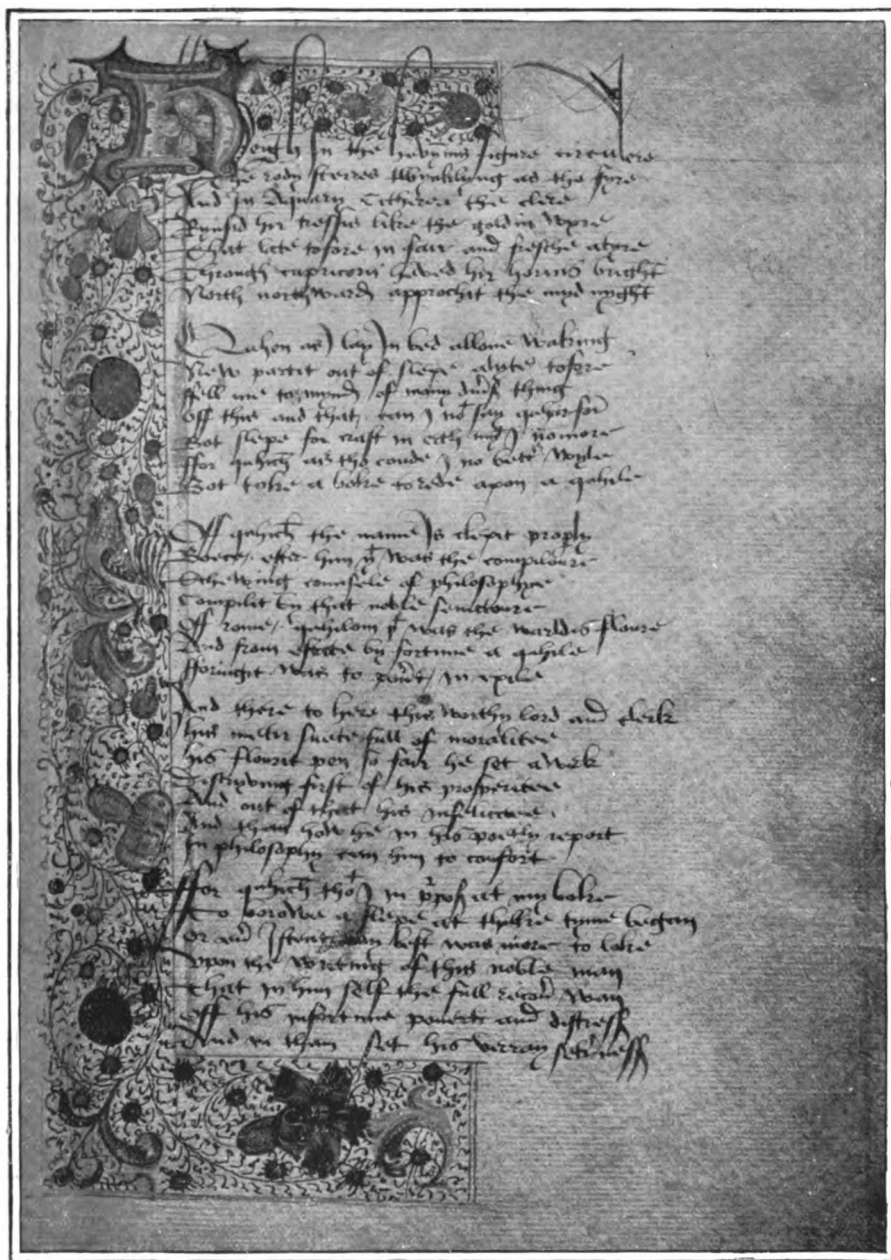 Heigh In the hevynnis figure circulere
The rody sterres twynklyng as the fyre
And in Aquary Citherea the clere
Rynsid hir tressis like the goldin wyre
That late tofore in fair and fresche atyre
Through capricorn heved hir hornis bright
North northward approchit the myd nyght

Quhen as I lay In bed allone waking
New partit out of slepe alyte tofore
ffell me to mynd of mony diuerse thing
Off this and that / can I noᵗ say quharfor
Bot slepe for craft in erth myᵗ I no more
ffor quhich as tho coude I no bettʳ wyle
Bot toke a boke to rede apon a quhile

Off quhich the name Is clepit proply
Boece / efter him yᵗ was the compiloure
Schewing counsele of philosophye
Compilit by that noble senatoure
Off rome / quhilom yᵗ was the warldis floure
And from estate by fortune a quhile
fforiugit was to pouert / in exile

And there to here this worthy lord and clerk
his metir suete full of moralitee
his flourit pen so fair he set a werk
Discryving first of his prosperitee
And out of that his infelicitee
And than how he in his poetly report
In philosophy can him to confort

ffor quhich thoᵗ I in pʳpose at my boke
To borowe a slepe at thilke tyme began
Or euer I stent my best was more to loke
Vpon the writing of this noble man
That in him self the full recouer wan
Off his infortune pouerte and distress
And in tham set his verray sekernesse